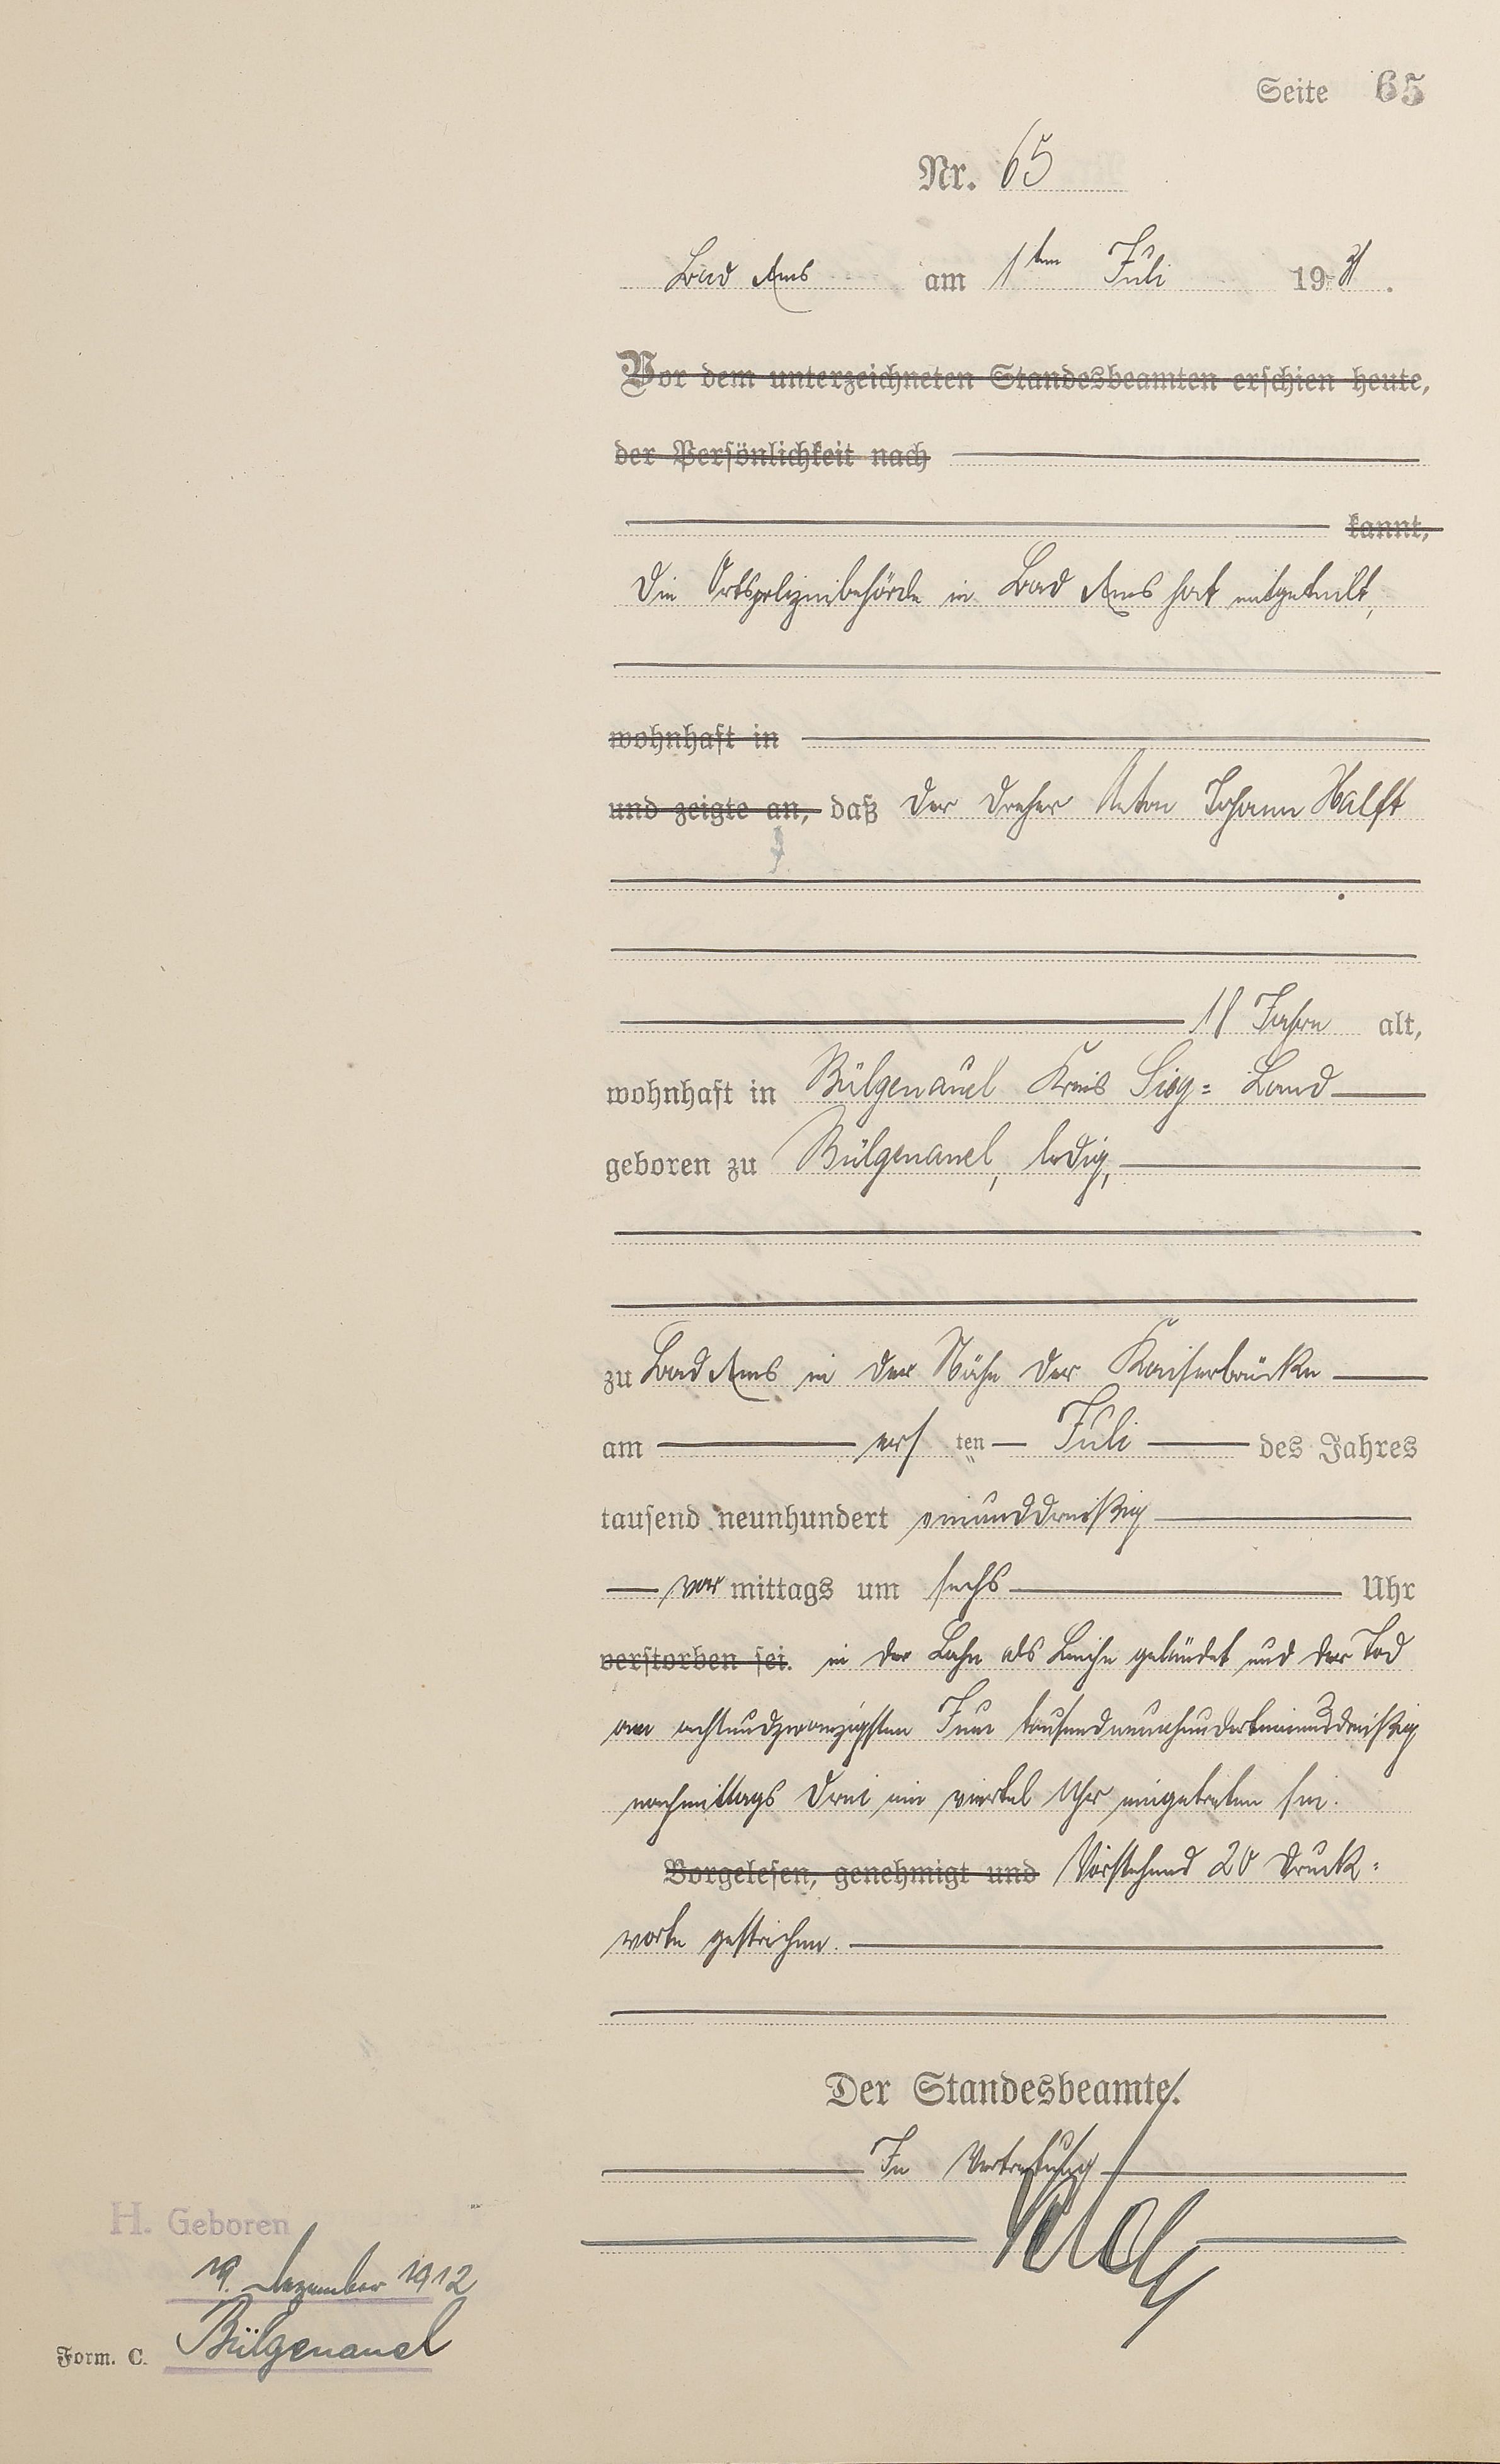 Seite 65
Nr. 65
Bad Ems am 1ten Juli 1931.
Vor dem unterzeichneten Standesbeamten erschien heute,
der Persönlichkeit nach
kannt,
Die Ortspolizeibehörde in Bad Ems hat mitgeteilt,
wohnhaft in
und zeigte an, daß der Dreher Anton Johann Halft
18 Jahre alt,
wohnhaft in Bülgenauel Kreis Sieg= Land
geboren zu Bülgenauel, ledig,
zu Bad Ems in der Nähe der Kaiserbrücke
am ersten Juli des Jahres
tausend neunhundert einunddreißig
vormittags um sechs Uhr
verstorben sei. in der Lahn als Leiche geländet und der Tod
am achtundzwanzigsten Juni tausendneunhunderteinunddreißig
nachmittags drei ein viertel Uhr eingetreten sei.
Vorgelesen, genehmigt und Vorstehend 20 Druck=
worte gestrichen.
Der Standesbeamte.
In Vertretung
H. Geboren
19. Dezember 1912
Bülgenauel
Form. C.